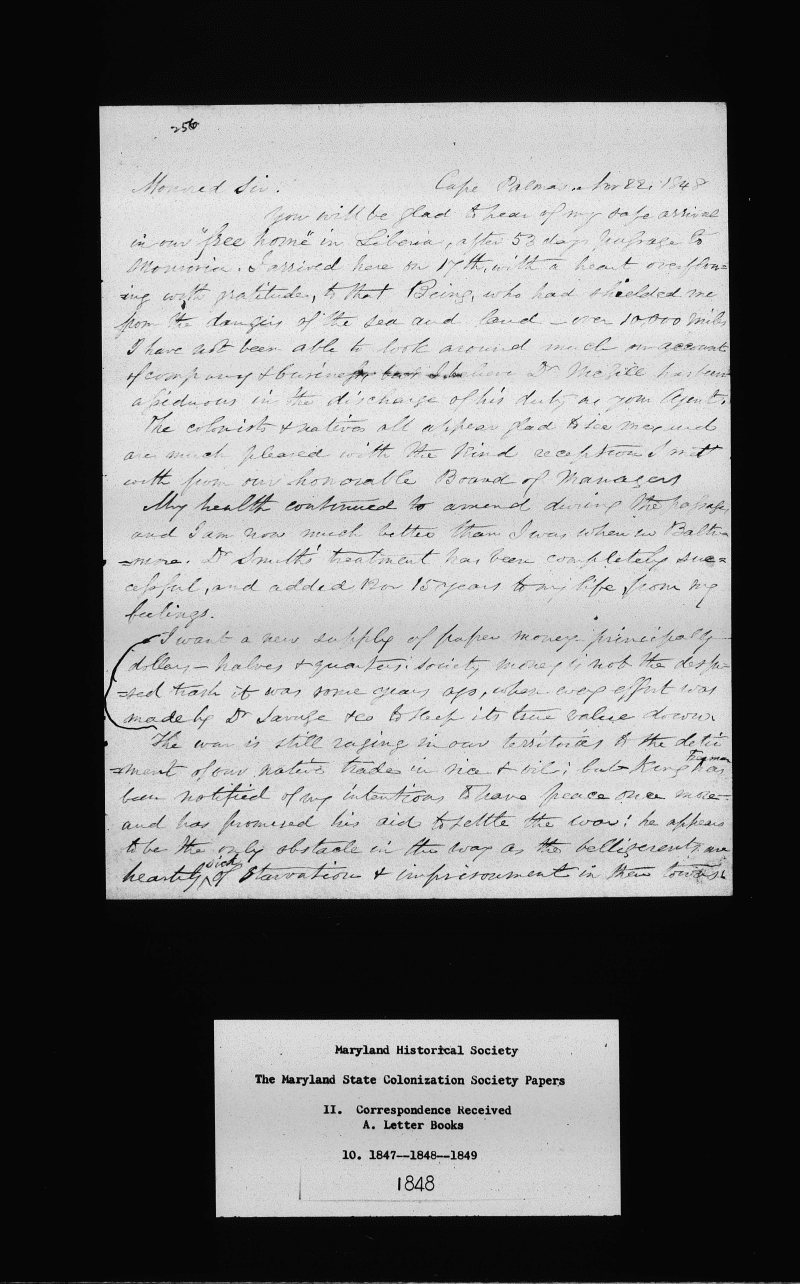 256
Honored Sir. Cape Palmas. Nov 22. 1848
You will be glad to hear of my safe arrival
in our "free home" in Liberia, after 53 days passage to
Monrovia. I arrived here on 17th, with a heart overflow=
=ing with gratitude, to that Being, who had shielded me
from the dangers of the sea and land – over 10.000 miles
I have not been able to look around much on account
of company & business believe Dr McGill has been
assiduous in the discharge of his duty as your Agent.
The colonists & natives all appear glad to see me, and
are much pleased with the kind reception I mett
with from our honorable Board of Managers
My health continued to amend during the passage,
and I am now much better than I was when in Balti=
=more. Dr Smith's treatment has been completely suc=
cessful, and added 12 or 15 years to my life, from my
feelings.
I want a new supply of paper money principally
dollars – halves & quarters: society money is not the despi=
=sed trash it was some years ago, when every effort was
made by Dr Savage &co to keep its true value down.
The war is still raging in our territories to the detri
=ment of our native trade in rice & oil; but King Freeman has
been notified of my intentions to have peace once more
and has promised his aid to settle the war: he appears
to be the only obstacle in the way as the belligerents are
heartily sick of starvation & imprisonment in their towns.
Maryland Historical Society
The Maryland State Colonization Society Papers
II. Correspondence Received
A. Letter Books
10. 1847--1848--1849
1848